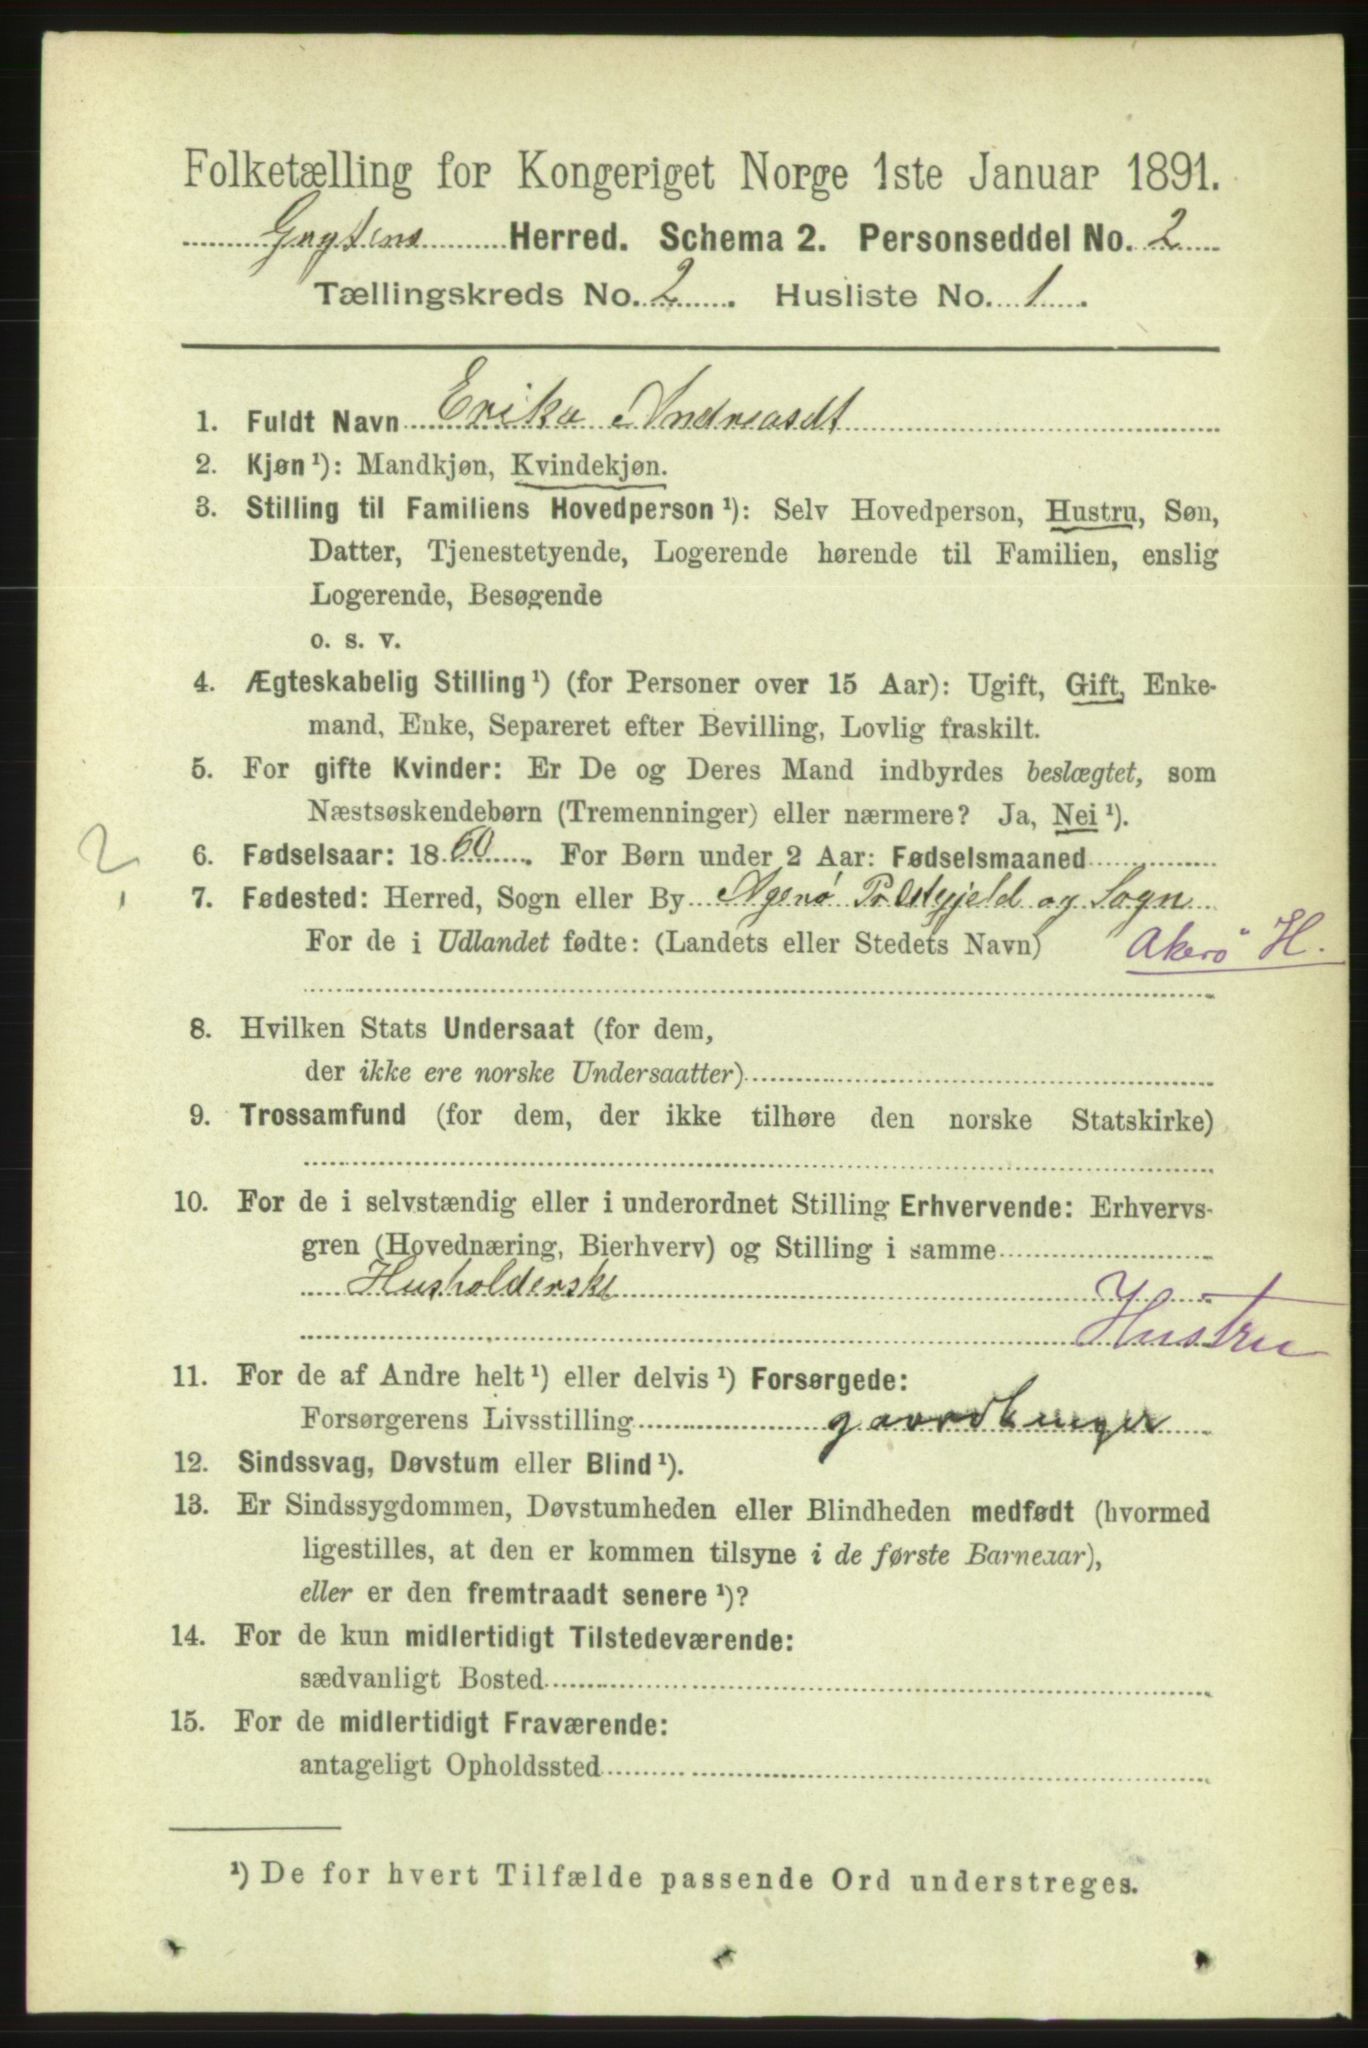 Folketælling for Kongeriget Norge 1ste Januar 1891.
Grytens Herred. Schema 2. Personseddel No. 2
Tællingskreds No. 2. Husliste No. 1.
1. Fuldt Navn Erika Andreasdt
2. Kjøn ¹): Mandkjøn, Kvindekjøn.
3. Stilling til Familiens Hovedperson ¹): Selv Hovedperson, Hustru, Søn,
Datter, Tjenestetyende, Logerende hørende til Familien, enslig
Logerende, Besøgende
o. s. v.
4. Ægteskabelig Stilling ¹) (for Personer over 15 Aar): Ugift, Gift, Enke-
mand, Enke, Separeret efter Bevilling, Lovlig fraskilt.
5. For gifte Kvinder: Er De og Deres Mand indbyrdes beslægtet, som
Næstsøskendebørn (Tremenninger) eller nærmere? Ja, Nei ¹).
?
6. Fødselsaar: 1860. For Børn under 2 Aar: Fødselsmaaned
7. Fødested: Herred, Sogn eller By Agerø Præstegjeld og Sogn
For de i Udlandet fødte: (Landets eller Stedets Navn) Akerø H.
8. Hvilken Stats Undersaat (for dem,
der ikke ere norske Undersaatter)
9. Trossamfund (for dem, der ikke tilhøre den norske Statskirke)
10. For de i selvstændig eller i underordnet Stilling Erhvervende: Erhvervs-
gren (Hovednæring, Bierhverv) og Stilling i samme
Husholderske
Hustru
11. For de af Andre helt ¹) eller delvis ¹) Forsørgede:
Forsørgerens Livsstilling gaardbruger
12. Sindssvag, Døvstum eller Blind ¹).
13. Er Sindssygdommen, Døvstumheden eller Blindheden medfødt (hvormed
ligestilles, at den er kommen tilsyne i de første Barneaar),
eller er den fremtraadt senere ¹)?
14. For de kun midlertidigt Tilstedeværende:
sædvanligt Bosted
15. For de midlertidigt Fraværende:
antageligt Opholdssted
¹) De for hvert Tilfælde passende Ord understreges.